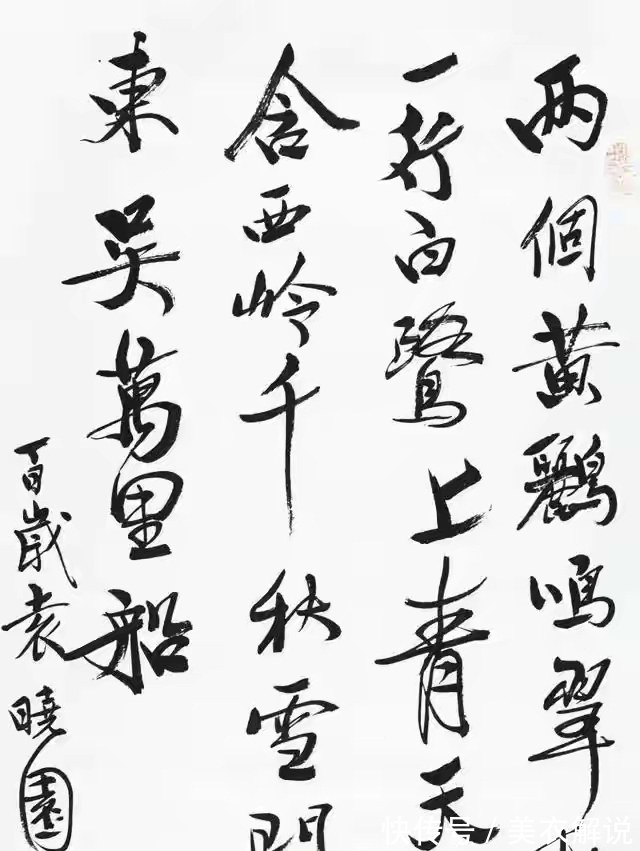 兩個黃鸝鳴翠
一行白鷺上青天
含西岭千秋雪門
東吳萬里船
百歲袁曉園
快传号/美衣解说